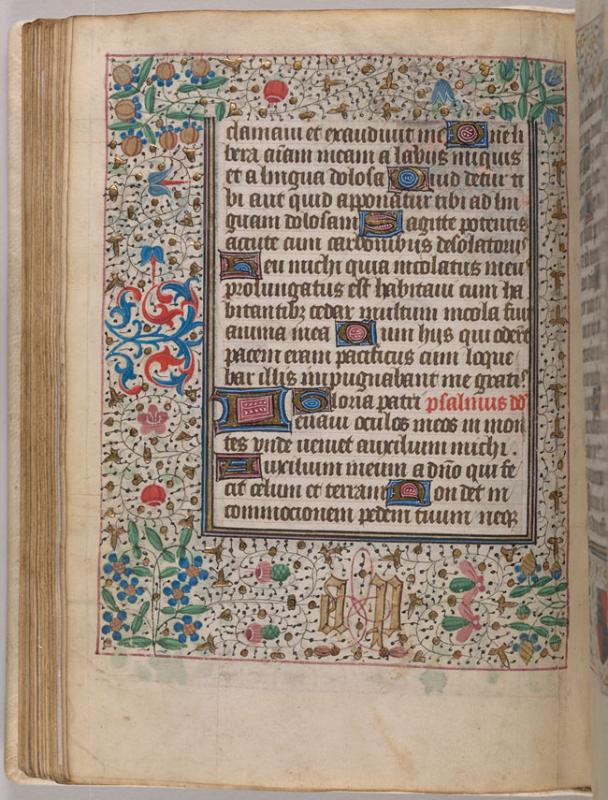 clamaui et exaudiuit me Dne li
bera aiam meam a labijs iniquis
et a lingua dolosa Quid detur ti
bi aut quid apponatur tibi ad lin
guam dolosam Sagitte potentis
accute cum carbonibus desolatorijs
Heu michi quia incolatus meus
prolungatus est habitaui cum ha
bitantibꝫ cedar multum incola fuit
anima mea Cum hijs qui oderūt
pacem eram pacificus cum loque
bar illis inpugnabant me gratis
Gloria patri psalmus dd
Leuaui oculos meos in mon
tes vnde veniet auxilium michi .
Auxilium meum a dno qui fe
cit celum et terram Non det in
commocionem pedem tuum neqꝫ